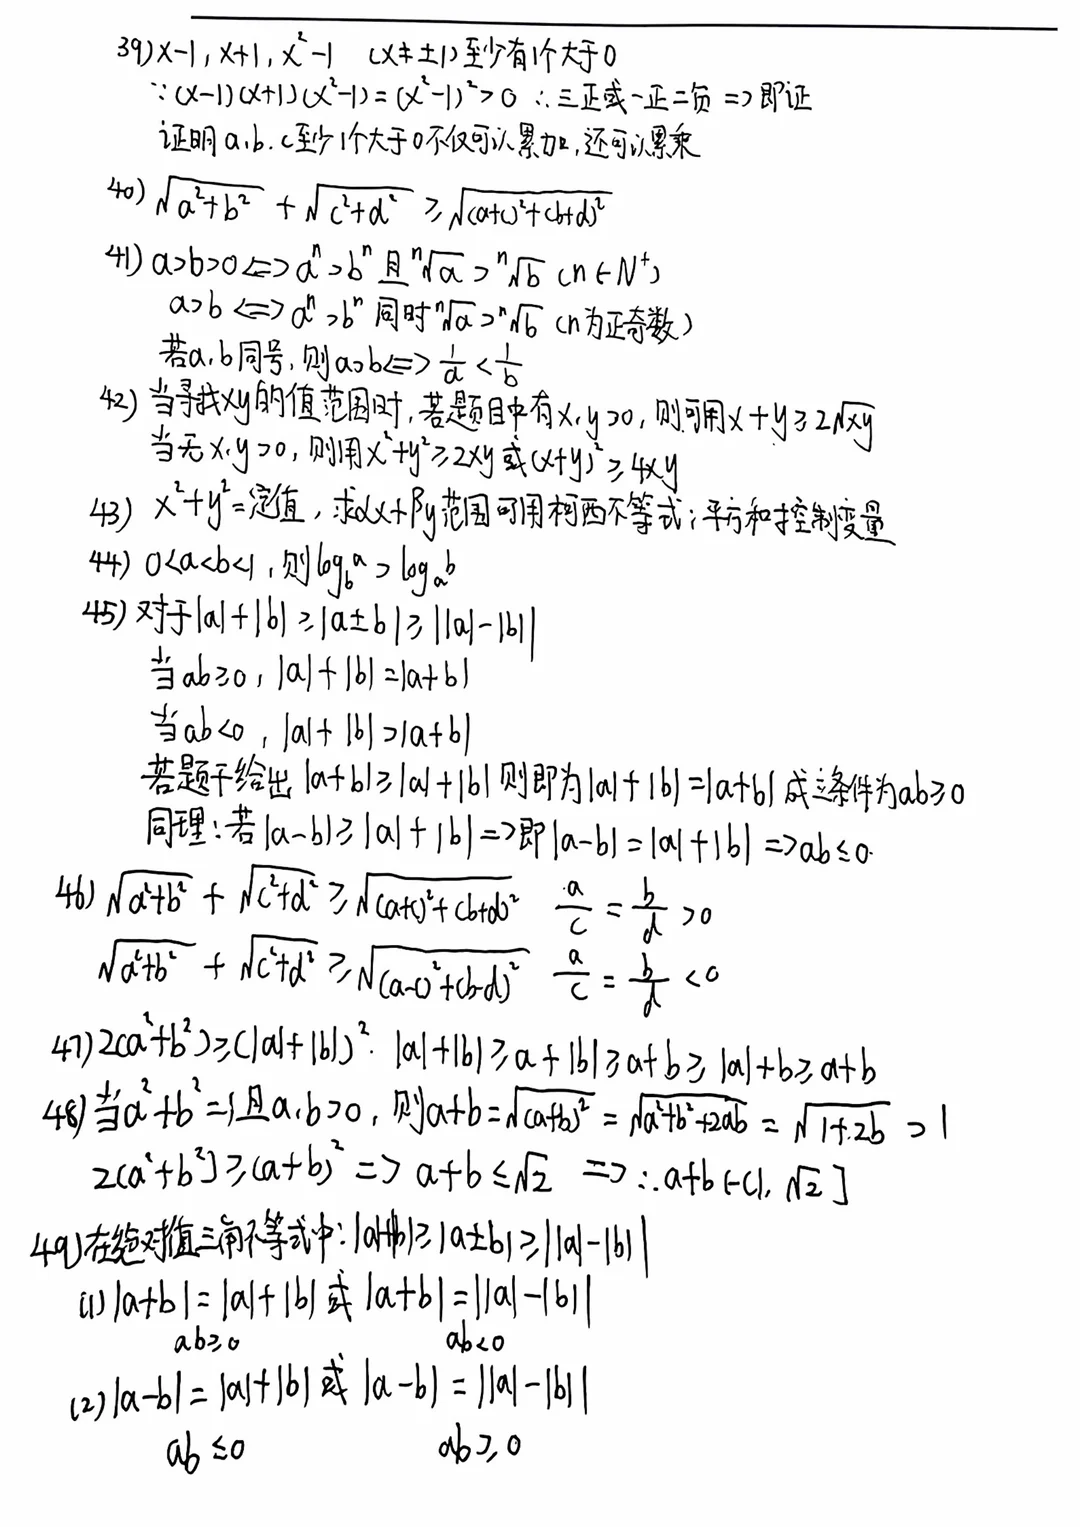 39) x-1, x+1, x²-1 (x≠±1)至少有1个大于0
∵(x-1)(x+1)(x²-1)=(x²-1)²>0 ∴三正或一正二负 => 即证
证明a,b,c至少1个大于0不仅可以累加,还可以累乘
40) √(a²+b²) + √(c²+d²) ≥ √((a+c)²+(b+d)²)
41) a>b>0 <=> aⁿ>bⁿ 且 ⁿ√a > ⁿ√b (n∈N⁺)
a>b <=> aⁿ>bⁿ 同时 ⁿ√a > ⁿ√b (n为正奇数)
若a,b同号,则a>b <=> 1/a < 1/b
42) 当寻找xy的值范围时,若题目中有x,y>0,则可用x+y≥2√xy
当无x,y>0,则用x²+y²≥2xy或(x+y)²≥4xy
43) x²+y²=定值,求αx+βy范围可用柯西不等式;平方和控制变量
44) 0<a<b<1,则log_b a > log_a b
45) 对于|a|+|b|≥|a±b|≥||a|-|b||
当ab≥0,|a|+|b|=|a+b|
当ab<0,|a|+|b|>|a+b|
若题干给出|a+b|≥|a|+|b|则即为|a|+|b|=|a+b|成立条件为ab≥0
同理:若|a-b|≥|a|+|b| =>即|a-b|=|a|+|b| =>ab≤0.
46) √(a²+b²) + √(c²+d²) ≥ √((a+c)²+(b+d)²) a/c = b/d >0
√(a²+b²) + √(c²+d²) ≥ √((a-c)²+(b-d)²) a/c = b/d <0
47) 2(a²+b²)≥(|a|+|b|)². |a|+|b|≥a+|b|≥a+b≥|a|+b≥a+b
48) 当a²+b²=1且a,b>0,则a+b=√(a+b)² = √(a²+b²+2ab) = √(1+2b) >1
2(a²+b²)≥(a+b)² => a+b≤√2 => ∴a+b∈(1, √2]
49) 在绝对值三角不等式中:|a|+|b|≥|a±b|≥||a|-|b||
(1) |a+b|=|a|+|b| 或 |a+b|=||a|-|b||
ab≥0 ab<0
(2) |a-b|=|a|+|b| 或 |a-b|=||a|-|b||
ab≤0 ab≥0